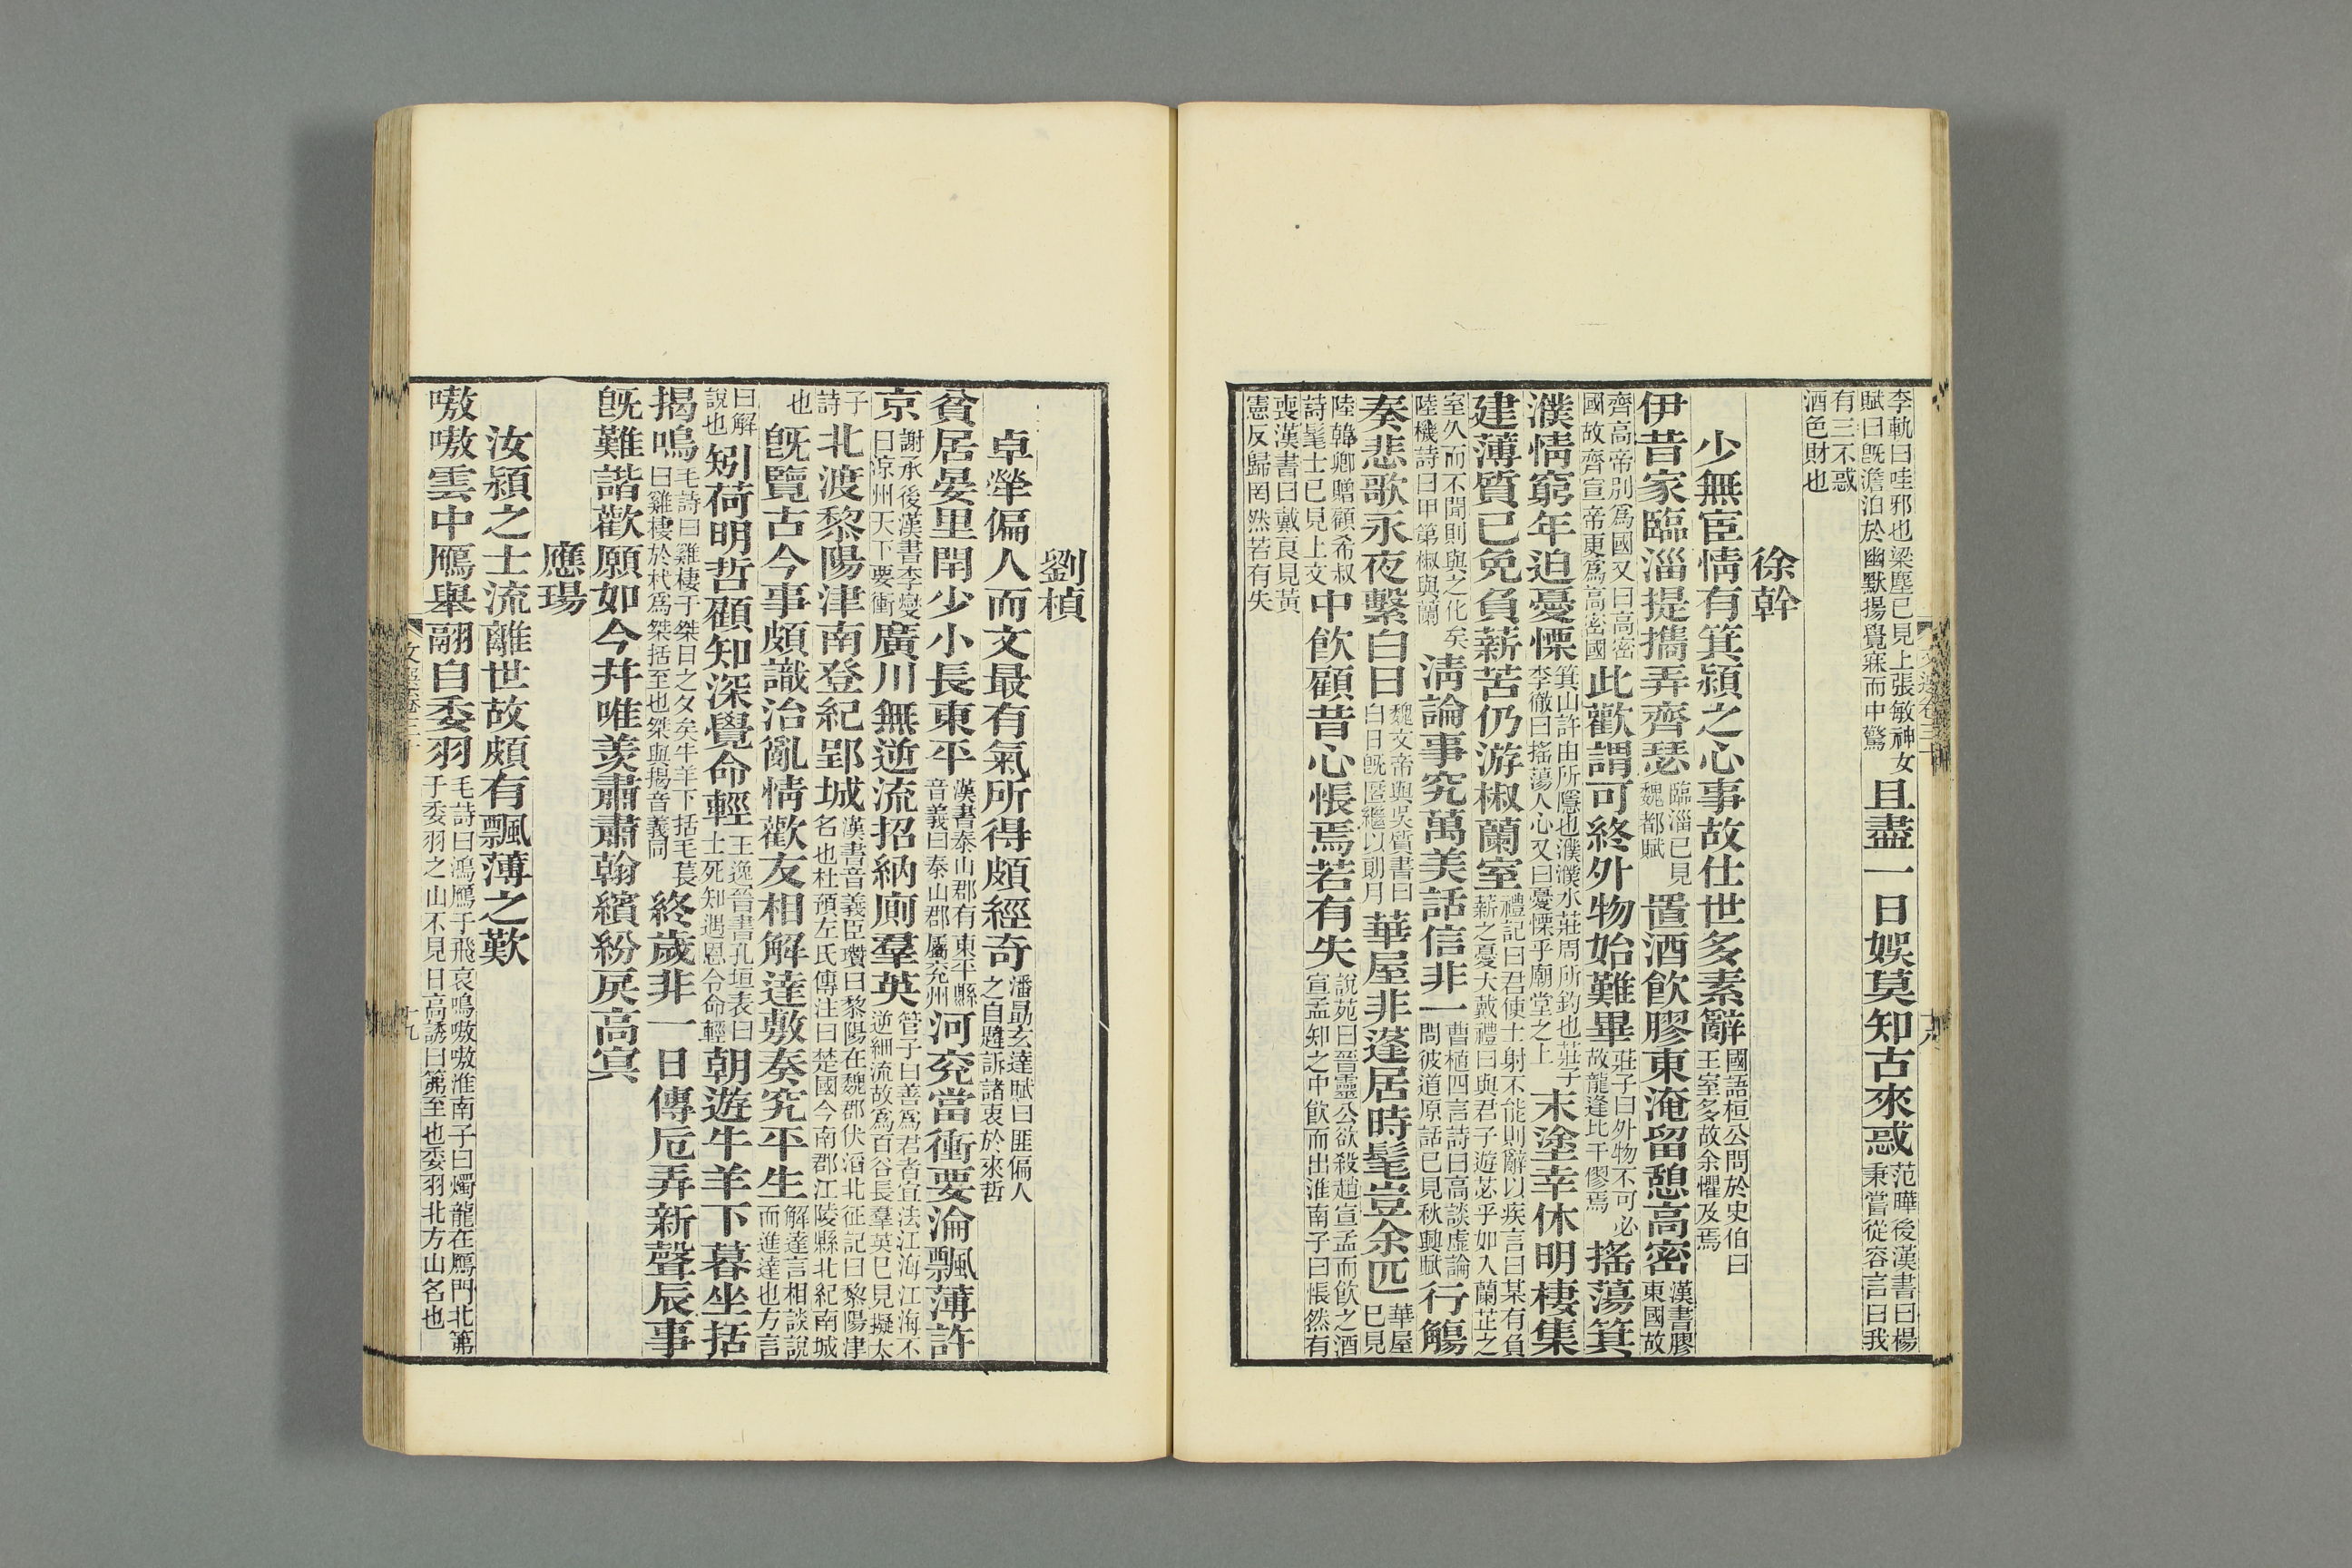 李軌曰哇邪也梁塵已見上張敏神女
賦曰既澹泊於幽默揚覺寐而中驚
且盡一日娛莫知古來惑
范曄後漢書曰楊
秉嘗從容言曰我
有三不惑
酒色財也
徐幹
少無宦情有箕潁之心事故仕世多素辭
國語桓公問於史伯曰
王室多故余懼及焉
伊昔家臨淄提攜弄齊瑟
臨淄已見
魏都賦
置酒飲膠東淹留憩高密
漢書膠
東國故
齊高帝別爲國又曰高密
國故齊宣帝更爲高密國
此歡謂可終外物始難畢
莊子曰外物不可必
故龍逢比干僇焉
搖蕩箕
濮情窮年迫憂慄
箕山許由所隱也濮濮水莊周所釣也莊子
李徹曰搖蕩人心又曰憂慄乎廟堂之上
末塗幸休明棲集
建薄質已免負薪苦仍游椒蘭室
禮記曰君使士射不能則辭以疾言曰某有負
薪之憂大戴禮曰與君子遊苾乎如入蘭芷之
室久而不聞則與之化矣
陸機詩曰甲第椒與蘭
淸論事究萬美話信非一
曹植四言詩曰高談虛論
問彼道原話已見秋興賦
行觴
奏悲歌永夜繫白日
魏文帝與吳質書曰
白日既匿繼以朗月
華屋非蓬居時髦豈余匹
華屋
已見
陸韓卿贈顧希叔
詩髦士已見上文
中飲顧昔心悵焉若有失
說苑曰晉靈公欲殺趙宣孟而飲之酒
宣孟知之中飲而出淮南子曰悵然有
喪漢書曰戴良見黃
憲反歸罔然若有失
劉楨
卓犖偏人而文最有氣所得頗經奇
潘勗玄達賦曰匪偏人
之自韙訴諸衷於來哲
貧居晏里閈少小長東平
漢書泰山郡有東平縣
音義曰泰山郡屬兗州
河兗當衝要淪飄薄許
京
謝承後漢書李燮
曰涼州天下要衝
廣川無逆流招納厠羣英
管子曰善爲君者宜法江海江海不
逆細流故爲百谷長羣英已見擬太
子
詩
北渡黎陽津南登紀郢城
漢書音義臣瓚曰黎陽在魏郡伏滔北征記曰黎陽津
名也杜預左氏傳注曰楚國今南郡江陵縣北紀南城
也
既覽古今事頗識治亂情歡友相解達敷奏究平生
解達言相談說
而進達也方言
曰解
說也
矧荷明哲顧知深覺命輕
王逸晉書孔坦表曰
士死知遇恩令命輕
朝遊牛羊下暮坐括
揭鳴
毛詩曰雞棲于桀日之夕矣牛羊下括毛萇
曰雞棲於杙爲桀括至也桀與揭音義同
終歲非一日傳卮弄新聲辰事
既難諧歡願如今幷唯羡肅肅翰繽紛戾高冥
應瑒
汝潁之士流離世故頗有飄薄之歎
嗷嗷雲中鴈舉翮自委羽
毛詩曰鴻鴈于飛哀鳴嗷嗷淮南子曰燭龍在鴈門北第
于委羽之山不見日高誘曰第至也委羽北方山名也